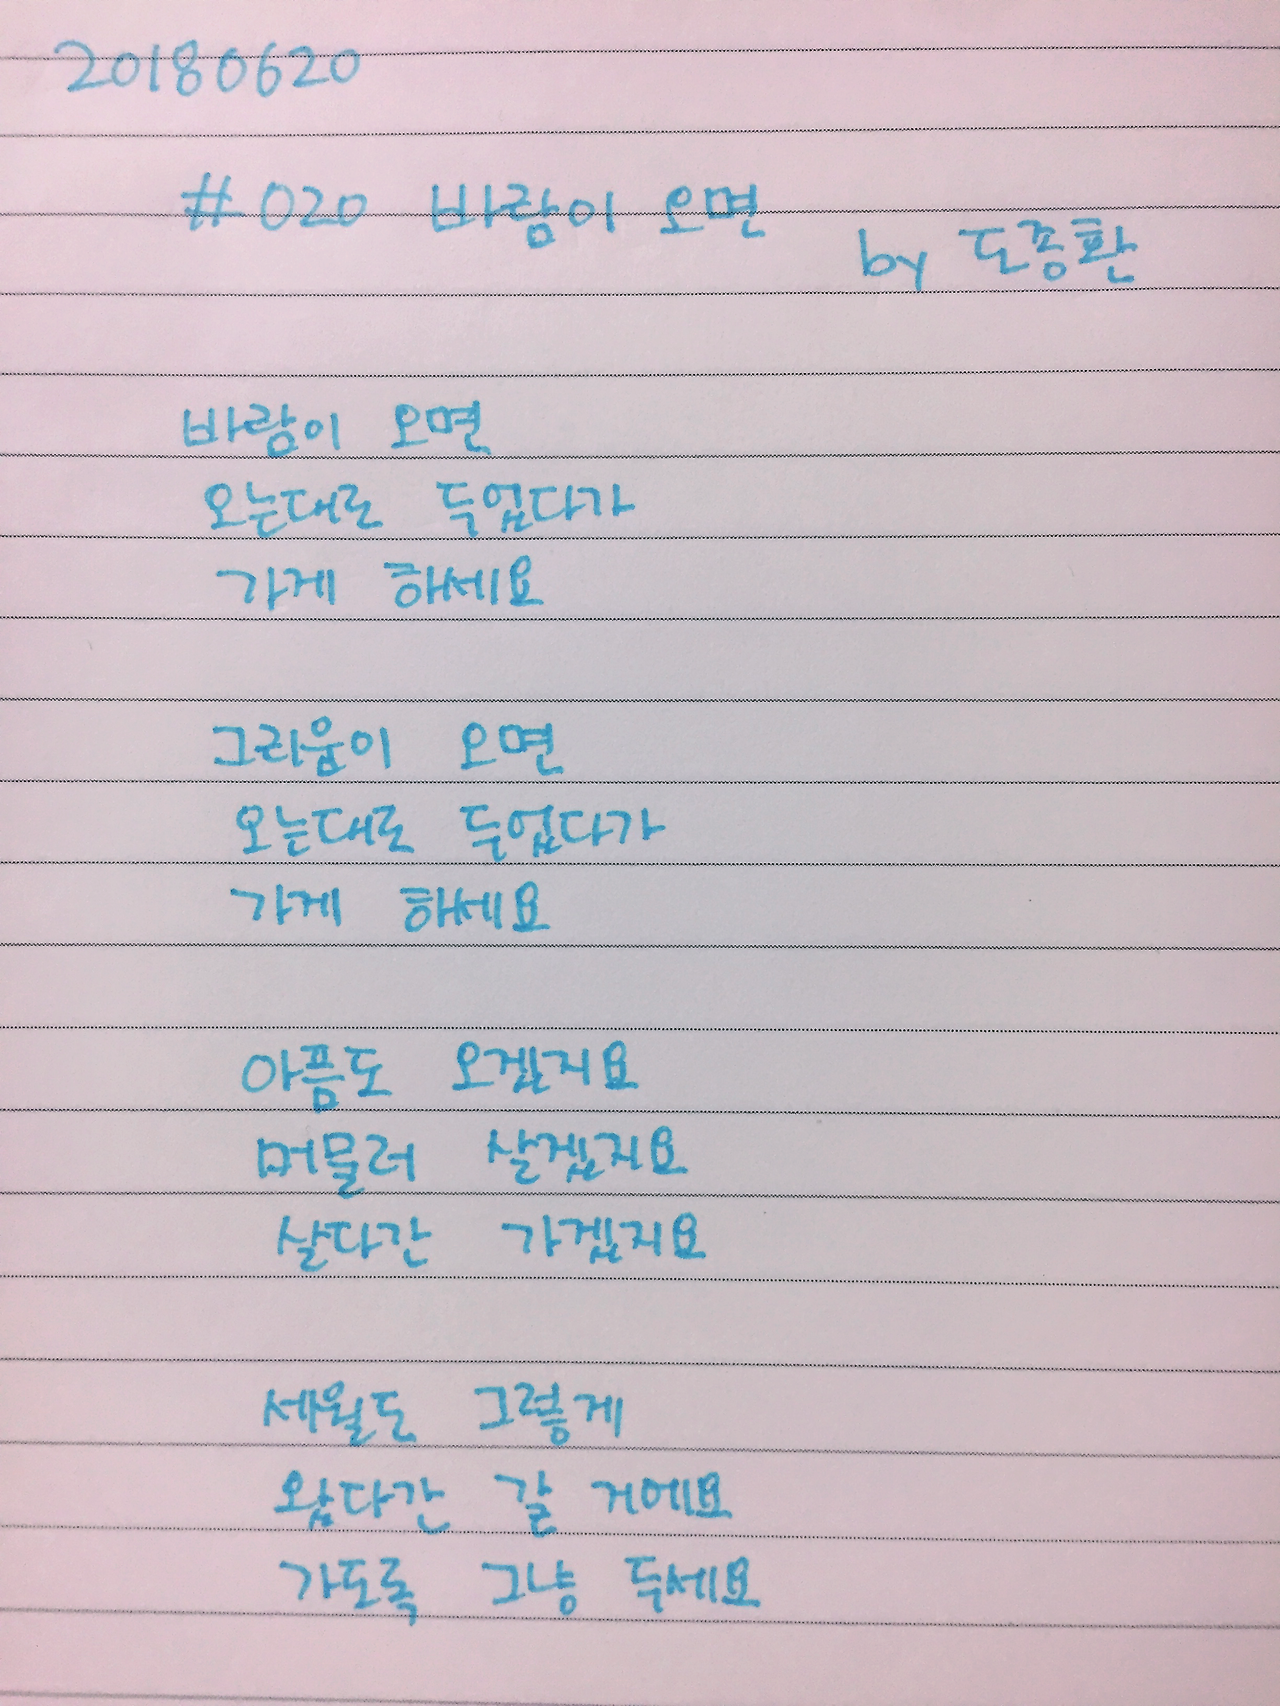 20180620
#020 바람이 오면
by 도종환
바람이 오면
오는대로 두었다가
가게 하세요
그리움이 오면
오는대로 두었다가
가게 하세요
아픔도 오겠지요
머물러 살겠지요
살다간 가겠지요
세월도 그렇게
왔다간 갈 거에요
가도록 그냥 두세요